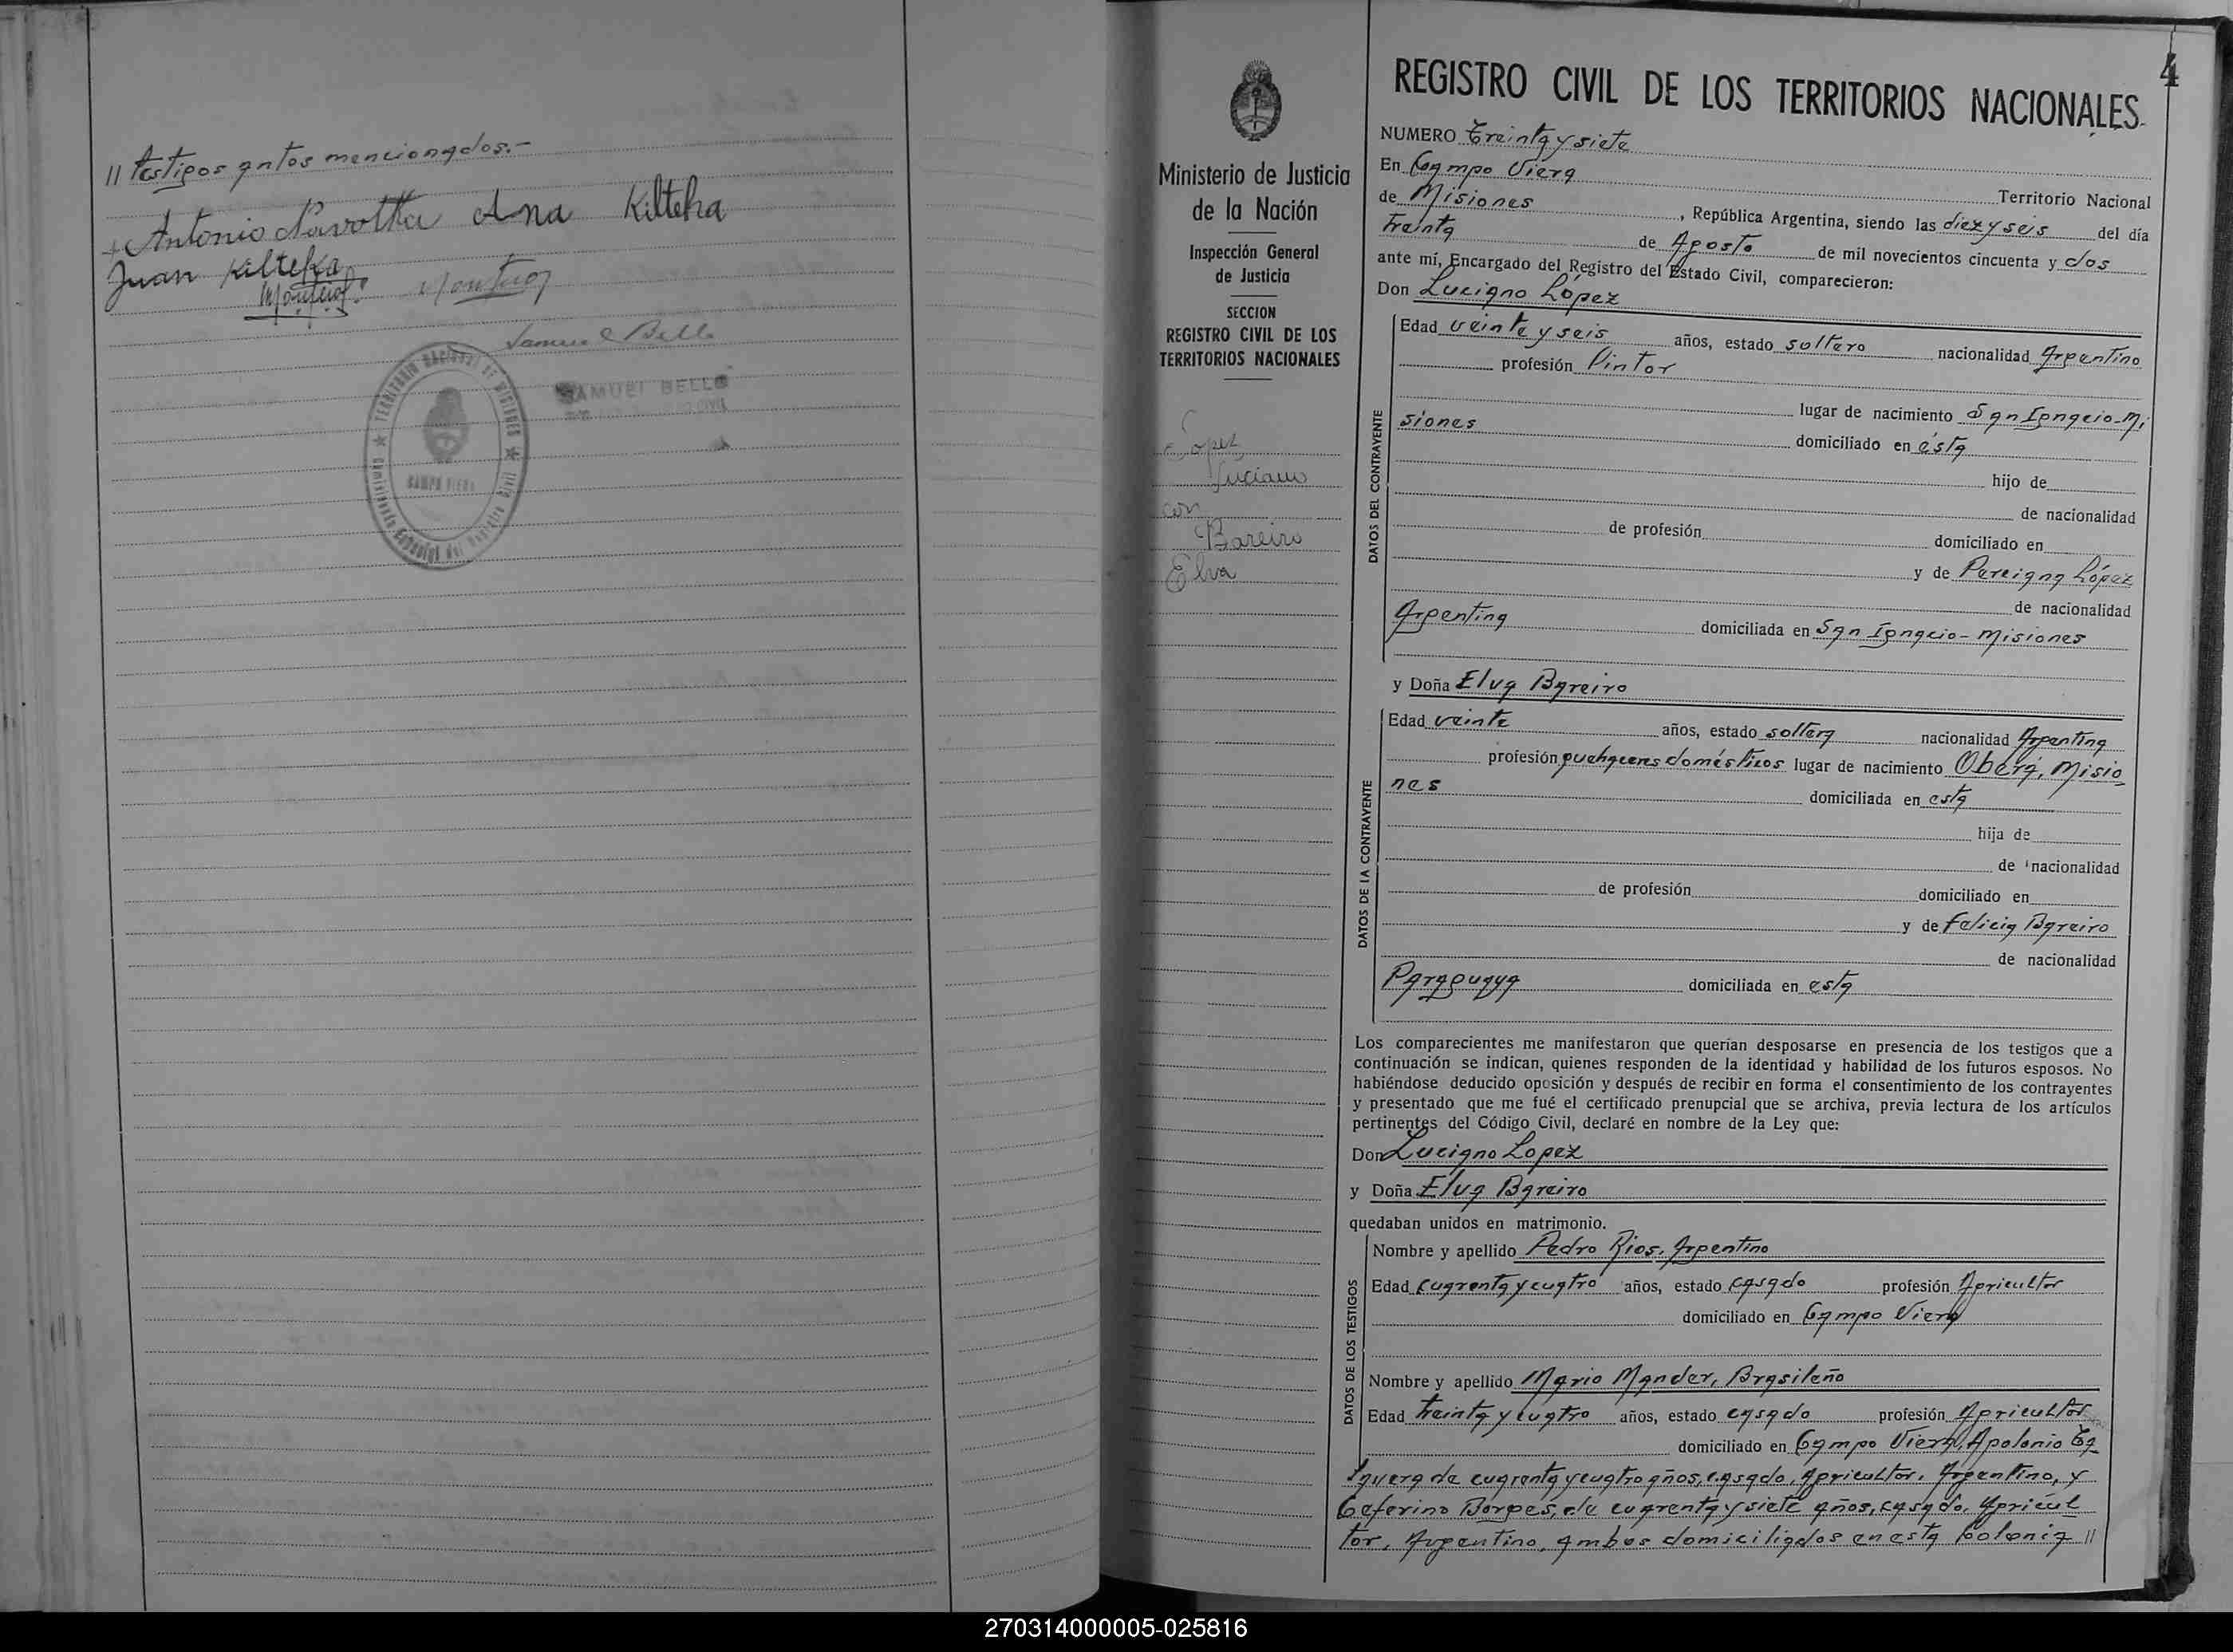 // testigos antes mencionados.-
Antonio Ana Kilteka
Juan Kilteka
Samuel Bello
TERRITORIO NACIONAL DE MISIONES
CAMPO VIERA
SAMUEL BELLO
4
REGISTRO CIVIL DE LOS TERRITORIOS NACIONALES
Ministerio de Justicia
de la Nación
Inspección General
de Justicia
SECCION
REGISTRO CIVIL DE LOS
TERRITORIOS NACIONALES
Lopez
Luciano
con
Bareiro
Elva
NUMERO Treinta y siete
En Campo Viera Territorio Nacional
de Misiones, República Argentina, siendo las diez y seis del día
treinta de Agosto de mil novecientos cincuenta y dos
ante mí, Encargado del Registro del Estado Civil, comparecieron:
Don Luciano López
DATOS DEL CONTRAYENTE
Edad veinte y seis años, estado soltero nacionalidad Argentino
profesión Pintor
lugar de nacimiento San Ignacio-Mi
siones domiciliado en ésta
hijo de
de nacionalidad
de profesión domiciliado en
y de Parciana López
de nacionalidad
Argentina domiciliada en San Ignacio-Misiones
y Doña Elva Bareiro
DATOS DE LA CONTRAYENTE
Edad veinte años, estado soltera nacionalidad Argentina
profesión quehaceres domésticos lugar de nacimiento Oberá, Misio
nes domiciliada en esta
hija de
de nacionalidad
de profesión domiciliado en
y de Felicia Bareiro
de nacionalidad
Paraguaya domiciliada en esta
Los comparecientes me manifestaron que querían desposarse en presencia de los testigos que a
continuación se indican, quienes responden de la identidad y habilidad de los futuros esposos. No
habiéndose deducido oposición y después de recibir en forma el consentimiento de los contrayentes
y presentado que me fué el certificado prenupcial que se archiva, previa lectura de los artículos
pertinentes del Código Civil, declaré en nombre de la Ley que:
Don Luciano Lopez
y Doña Elva Bareiro
quedaban unidos en matrimonio.
DATOS DE LOS TESTIGOS
Nombre y apellido Pedro Rios, Argentino
Edad cuarenta y cuatro años, estado casado profesión Agricultor
domiciliado en Campo Viera
Nombre y apellido Mario Mander, Brasileño
Edad treinta y cuatro años, estado casado profesión Agricultor
domiciliado en Campo Viera, Apolonio Ta
lavera de cuarenta y cuatro años, casado, Agricultor, Argentino, y
Ceferino Borges, de cuarenta y siete años, casado, Agricul
tor, Argentino, ambos domiciliados en esta Colonia //
270314000005-025816